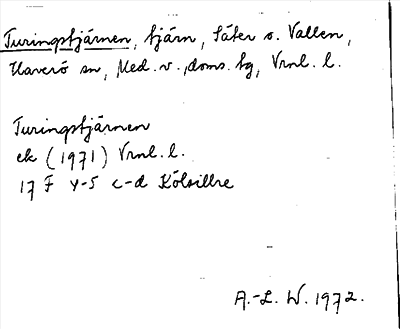 Turingstjärnen, tjärn, Säter o. Vallen,
Haverö sn, Med. v. doms. tg, Vrnl. l.
Turingstjärnen
ek (1971) Vrnl. l.
17 F 4-5 c-d Kölsillre
A.-L. W. 1972.